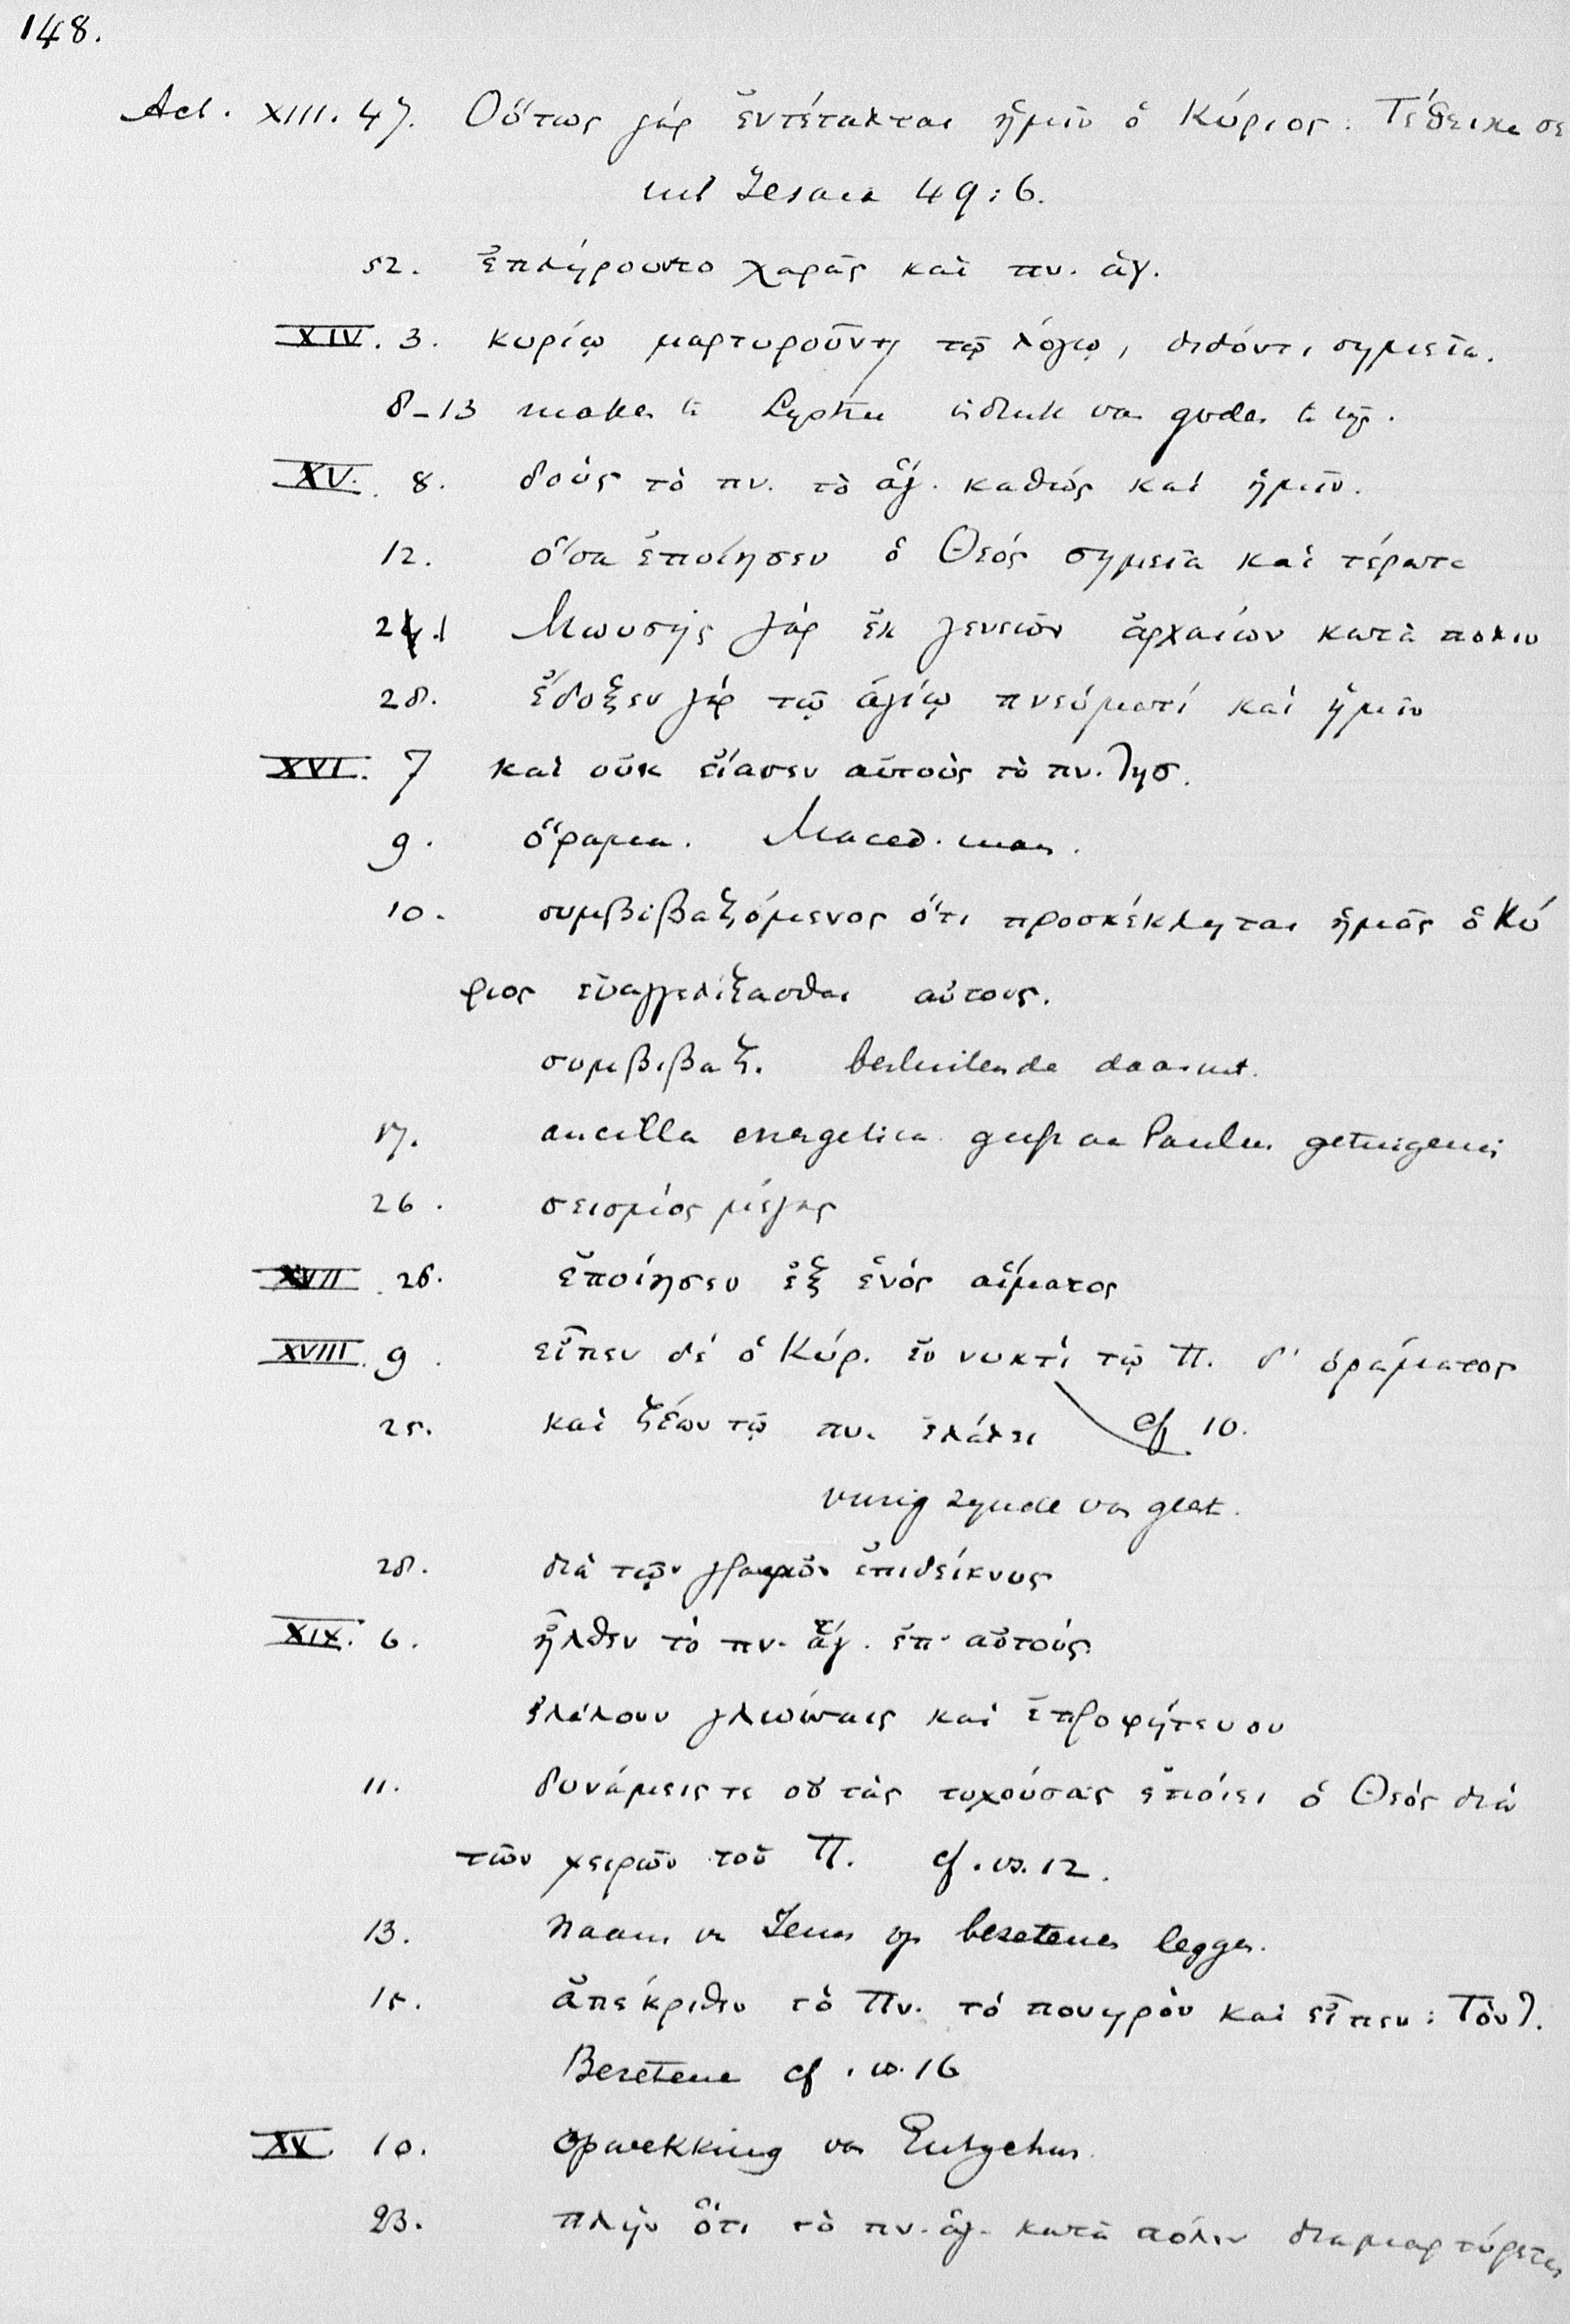 148.
Act. XIII. 47. Οὕτως γάρ ἐντέταλται ἡμῖν ὁ Κύριος: Τέθεικα σε
uit Jesaia 49:6.
52. ἐπληροῦντο χαρᾶς καὶ πν. ἁγ.
XIV. 3. κυρίῳ μαρτυροῦντι τῷ λόγῳ, διδόντι σημεῖα.
8-13 maken te Lystra indruk van goden te zijn.
XV. 8. δοὺς τὸ πν. τὸ ἅγ. καθὼς καὶ ἡμῖν.
12. ὅσα ἐποίησεν ὁ Θεός σημεῖα καὶ τέρατα
21 Μωυσῆς γάρ ἐκ γενεῶν ἀρχαίων κατὰ πολιν
28. ἔδοξεν γάρ τῷ ἁγίῳ πνεύματί καὶ ἡμῖν
XVI. 7 καὶ οὐκ εἴασεν αὐτοὺς τὸ πν. Ἰησ.
9. ὅραμα. Maced. man.
10. συμβιβαζόμενος ὅτι προσκέκληται ἡμᾶς ὁ Κύ
ριος εὐαγγελίζασθαι αὐτους.
συμβιβαζ. besluitende daaruit.
17. ancilla energetica geeft aan Paulus getuigenis
26. σεισμός μέγας
XVII 26. ἐποίησεν ἐξ ἑνός αἵματος
XVIII. 9. εἶπεν δέ ὁ Κύρ. ἐν νυκτὶ τῷ Π. δ' ὁράματος
25. καὶ ζέων τῷ πν. ἐλάλει cf 10.
vurig zijnde van geest.
28. διὰ τῶν γραφῶν ἐπιδείκνυς
XIX. 6. ἦλθεν τὸ πν. ἅγ. ἐπ' αὐτούς
ἐλάλουν γλώσσαις καὶ ἐπροφήτευον
11. δυνάμεις τε οὐ τὰς τυχούσας ἐποίει ὁ Θεός διὰ
τῶν χειρῶν τοῦ Π. cf. vs. 12.
13. naam v Jezus op bezetenen leggen.
15. ἀπεκριθεν τὸ Πν. τὸ πονηρὸν καὶ εἶπεν: Τὸν Ἰ.
Bezetene cf. vs. 16
XX. 10. opwekking van Eutychus.
23. πλὴν ὅτι τὸ πν. ἅγ. κατὰ πόλιν διαμαρτύρεται